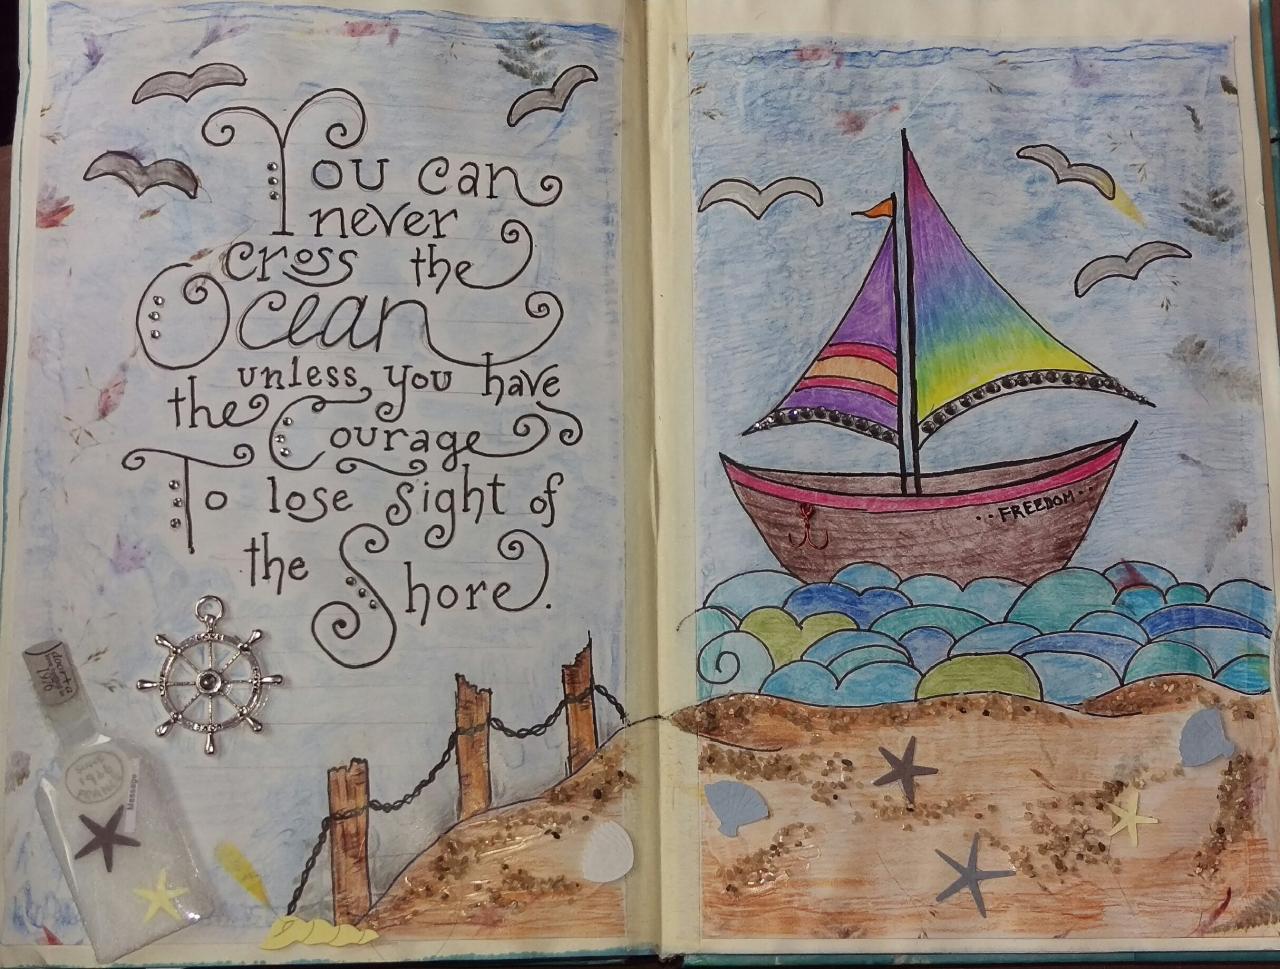 You can
never
cross the
Ocean
unless, you have
the Courage
To lose sight of
the Shore.
FREEDOM
1976
Message